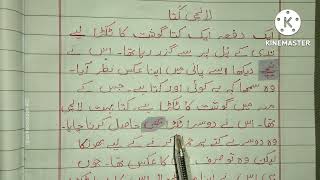 لالچی کتا
ایک دفعہ ایک کتا گوشت کا ٹکڑا لیے
ندی کے پل پر سے گزر رہا تھا۔ اس نے
نیچے دیکھا اسے پانی میں اپنا عکس نظر آیا۔
وہ سمجھا کہ یہ کوئی اور کتا ہے جس کے
منہ میں گوشت کا ٹکڑا ہے کتا بہت لالچی
تھا۔ اس نے دوسرا ٹکڑا بھی حاصل کرنا چاہا۔
وہ دوسرے کتے پر کرنے کے لیے بھونکا
لیکن وہ تو صرف کا عکس تھا۔ جوں
KINEMASTER